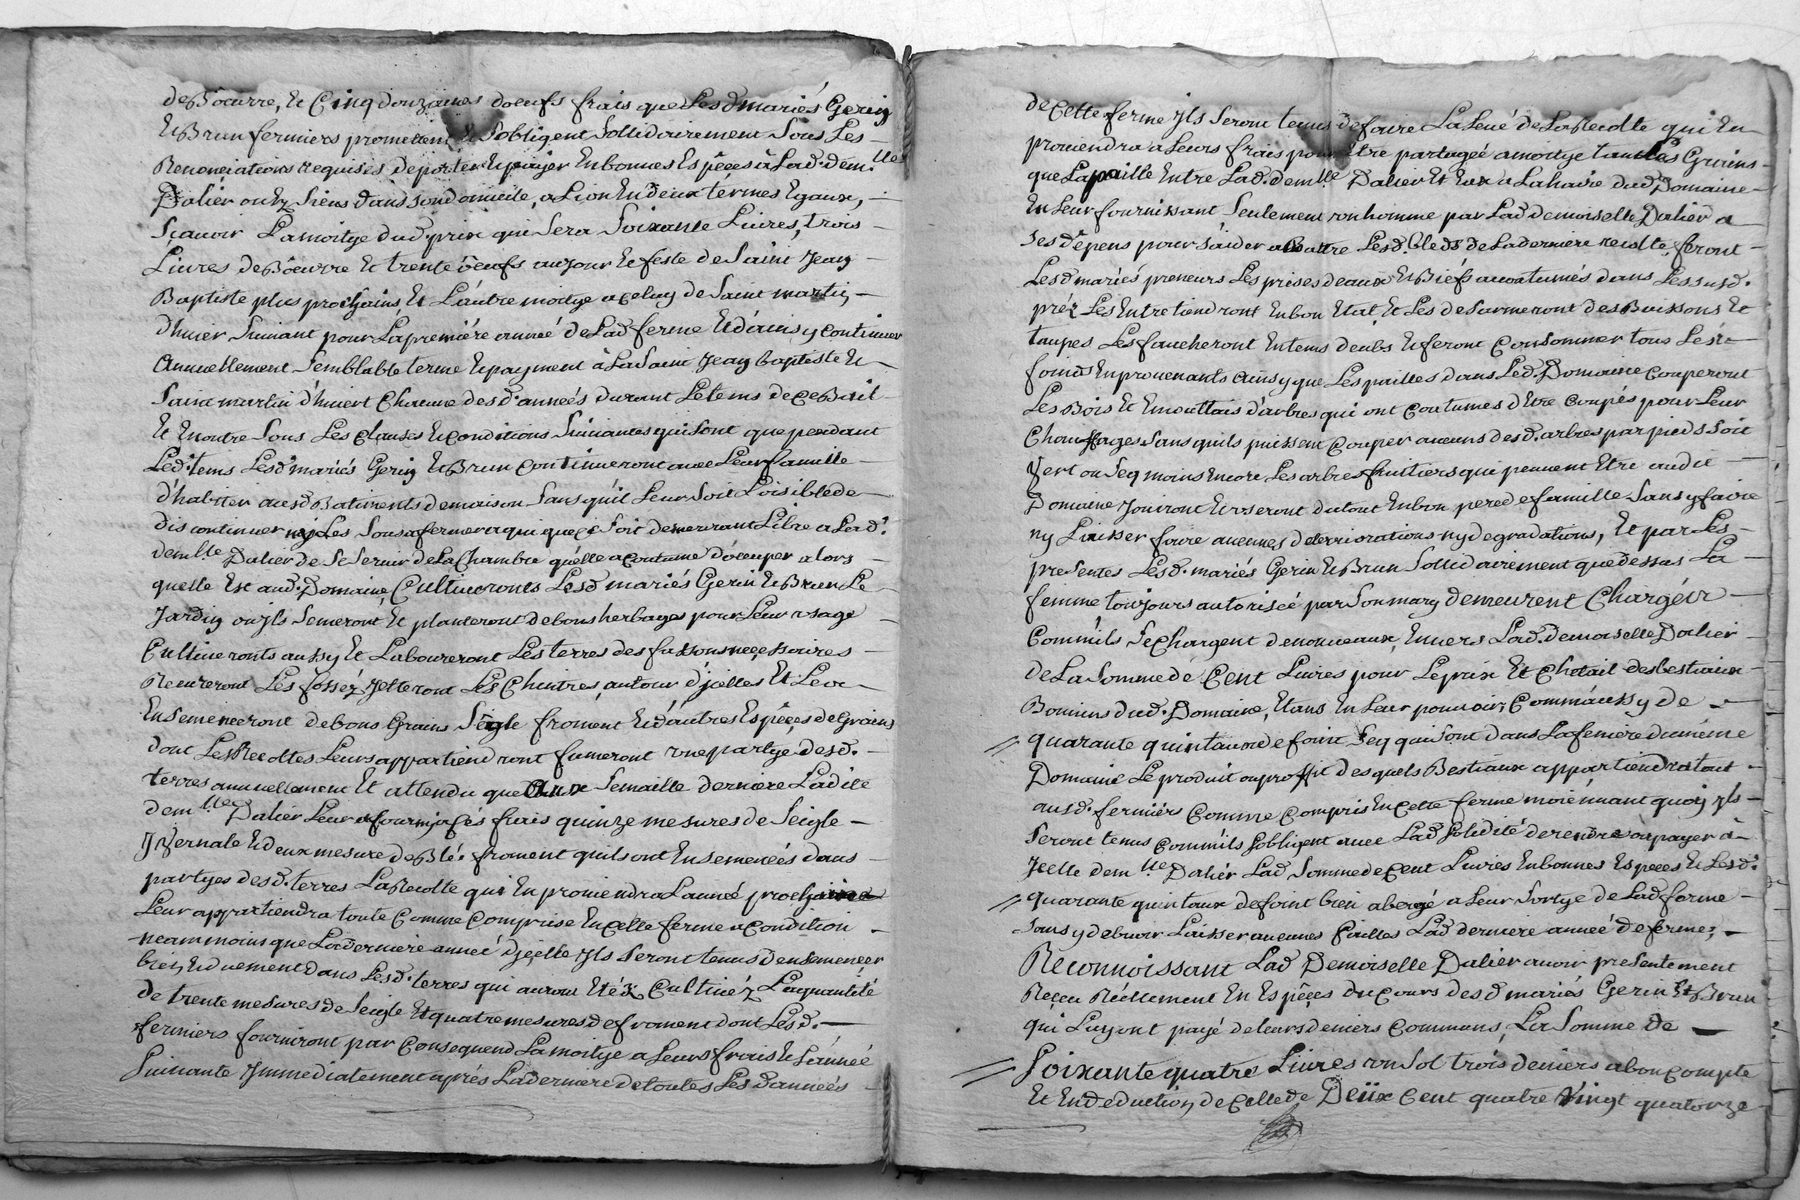 de Bôeurre, Et Cinq douzaines d'oeufs frais que Lesd mariés Gerin
Et Brun fermiers promettent Et s'obligent Sollidairement Sous Les
Renonciations requises de porter Et payer En bonnes Espêces â Lad. demlle
Dalier ou Ez Siens dans son domicile, a Lion En deux termes Egaux,
Scavoir La moitye dud. prix qui Sera Soixante Livres, trois
Livres de Bôeurre Et trente ôeufs au jour Et feste de Saint Jean
Baptiste plus prochains, Et L'autre moitye a Celuy de Saint martin
d'hiver Suivant pour La premiére année de Lad ferme Et d'ainsy continuer
Annuellement Semblable terme Et payment â La Saint Jean baptiste Et
Saint martin d'hivert Chacune desd. années durant Le tems de Ce Bail
Et En outre Sous Les Clauses Et Conditions Suivantes qui sont que pendant
Led. tems Lesd mariés Gerin Et Brun Continueront avec Leur famille
d'habiter auxd Batiments de maison Sans qu'il Leur Soit Loisible de
discontinuer ny Les Sousafermer a qui que Ce Soit demeurant Libre a Lad.
demlle Dalier de Se Servir de La Chambre qu'elle a Coutume d'occuper alors
quelle Est aud. Domaine, Cultiveronts Lesd mariés Gerin Et Brun Le
Jardin ou jls Semeront Et planteront de bons herbages pour Leur usage
Cultiveronts aussy Et Laboureront Les terres des fassons necessaires
Recureront Les fossez Jetteront Les Chintres autour d'jcelles Et Les
Ensemenceront de bons Grains Seigle froment Et d'autres Espêces de Grains
dont Les Recoltes Leurs appartiendront fumeront une partye desd.
terres annuellement Et attendu que aux Semaille derniere Ladite
demlle Dalier Leur a fourni a Ses frais quinze mesures de Seigle
Jvernale Et deux mesure de Blé froment quils ont Ensemencés dans
partyes desd. terres La Recolte qui En proviendra L'année prochaine
Leur appartiendra toute Comme Comprise En Cette ferme a Condition
neammoins que La derniere année d'jcelle jls Seront tenus d'ensemencer
bien Et duement dans Lesd. terres qui auront Etéz Cultivéz La quantité
de trente mesures de Seigle Et quatre mesures de froment dont Lesd.
fermiers fourniront par Consequend La moitye a Leurs frais Et L'année
Suivante Jmmediatement aprés La derniere de toutes Lesd années
de Cette ferme jls Seront tenus de faire La Levé de La Recolte qui En
proviendra a Leurs frais pour Etre partagée a moitye tant Les Grains
que La paille Entre Lad. demlle Dalier Et Eux a La haire dud Domaine
En Leur fournissant Seulement un homme par Lad demoiselle Dalier a
ses dépens pour s'aider a Battre Lesd. bleds de La derniere recolte, feront
Lesd mariés preneurs Les prises d'eaux Et Biéfs acoutumés dans Les susd.
préz Les Entretiendront En bon Etat, Et Les desarmeront des Buissons Et
taupes Les faucheront En tems deubs Et feront Consommer tous Les
foins En provenants ainsy que Les pailles dans Led. Domaine Couperont
Les Bois Et Emouttais d'arbres qui ont Coutumes d'Etre Coupés pour Leur
Chauffages Sans quils puissent Couper aucuns desd. arbres par pieds soit
Vert ou Seq moins Encore Les arbres fruitiers qui peuvent Etre audit
Domaine Jouiront Et useront du tout En bon pere de famille Sans y faire
ny Laisser faire aucunes deterriorations ny degradations, Et par Les
presentes Lesd. mariés Gerin Et Brun Sollidairement que dessus La
femme toujours autorisée par Son mary demeurent Chargér
Comm'ils Se Chargent de nouveaux, Envers Lad. demoiselle Dalier
de La Somme de Cent Livres pour Le prix Et Chetail des bestiaux
Bovins dud. Domaine, Etans En Leur pouvoir, Comm'aussy de
quarante quintaux de foint Seq qui Sont dans La feniere du même
Domaine Le produit ou proffit des quels Bestiaux appartiendra tout
ausd. fermiers Comme Compris En Cette ferme moiënnant quoy jls
Seront tenus Comm'ils S'obligent avec Lad Solidité de rendre ou payer â
Jcelle demlle Daliér Lad Somme de Cent Livres En bonnes Espêces Et Lesd.
quarante quintaux de foint bien abergé a Leur Sortye de Lad ferme
Sans y debvoir Laisser aucunes Pailles Lad derniere année de ferme;
Reconnoissant Lad Demoiselle Dalier avoir presentement
Reçeu Réellement En Espêces du Cours desd mariés Gerin Et Brun
qui Luy ont payé de Leurs deniers Communs, La Somme de
Soixante quatre Livres un Sol trois deniers a bon Compte
Et En deduction de Celle de Deux Cent quatre Vingt quatorze